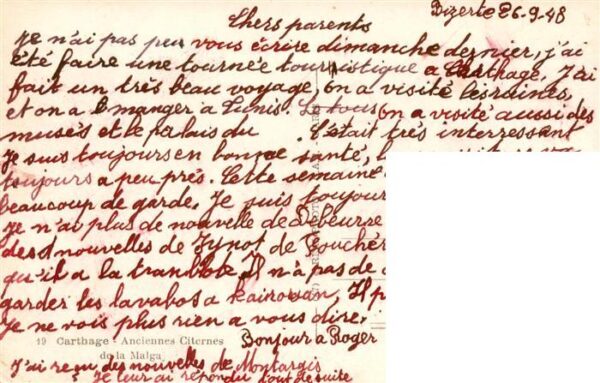 Bizerte 26-9-48
Chers parents
Je n'ai pas peu vous écrire dimanche dernier, j'ai
été faire une tournée tourristique a Carthage, J'ai
fait un très beau voyage, on a visité les ruines,
et on a manger a Tunis. on a visité aussi des
musés et le palais du C'était très interressant
Je suis toujours en bonne santé,
toujours a peu prés. Cette semaine
beaucoup de garde, Je suis toujour
Je n'ai plus de nouvelle de Debeurse
des nouvelles de de
qu'il a la tranblote Il n'a pas de
garder les lavabos a Kairouan, Il
Je ne vois plus rien a vous dire.
Bonjour a Roger
19 Carthage - Anciennes Citernes
de la Malga
J'ai reçu des nouvelles de Montargis
Je leur ai répondu tout de suite